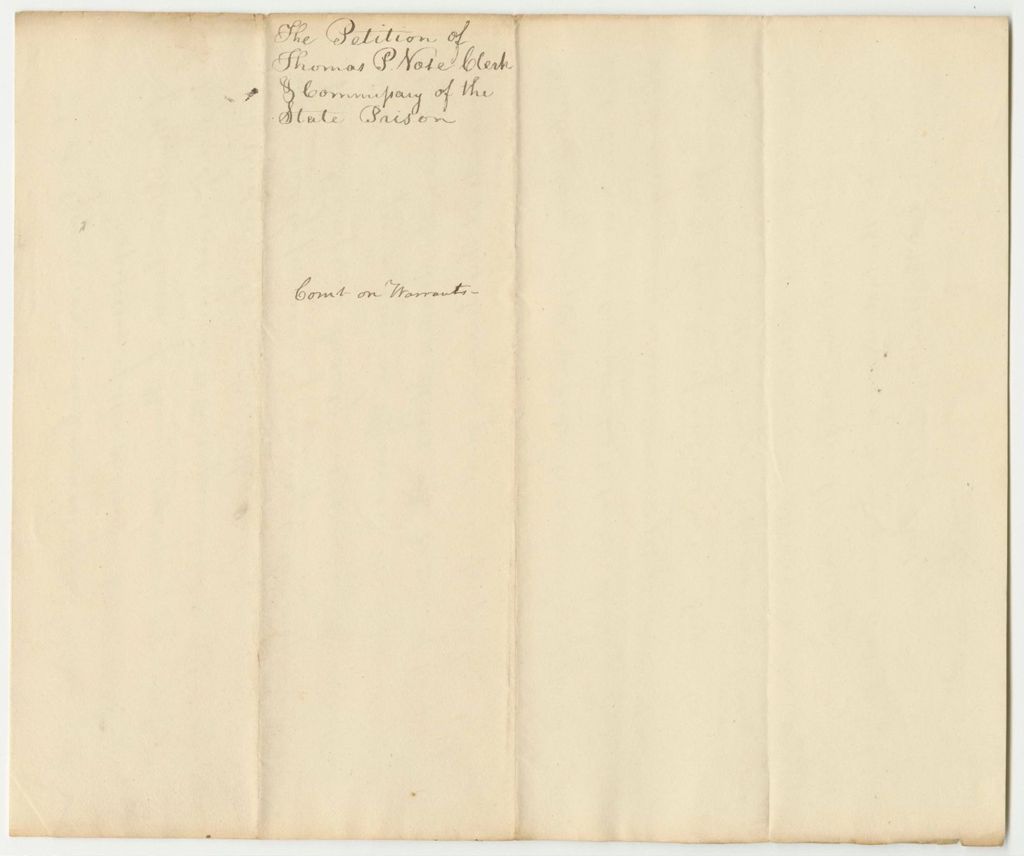 The Petition of
Thomas P. Vose Clerk
& Commissary of the
State Prison
Comt on Warrants-